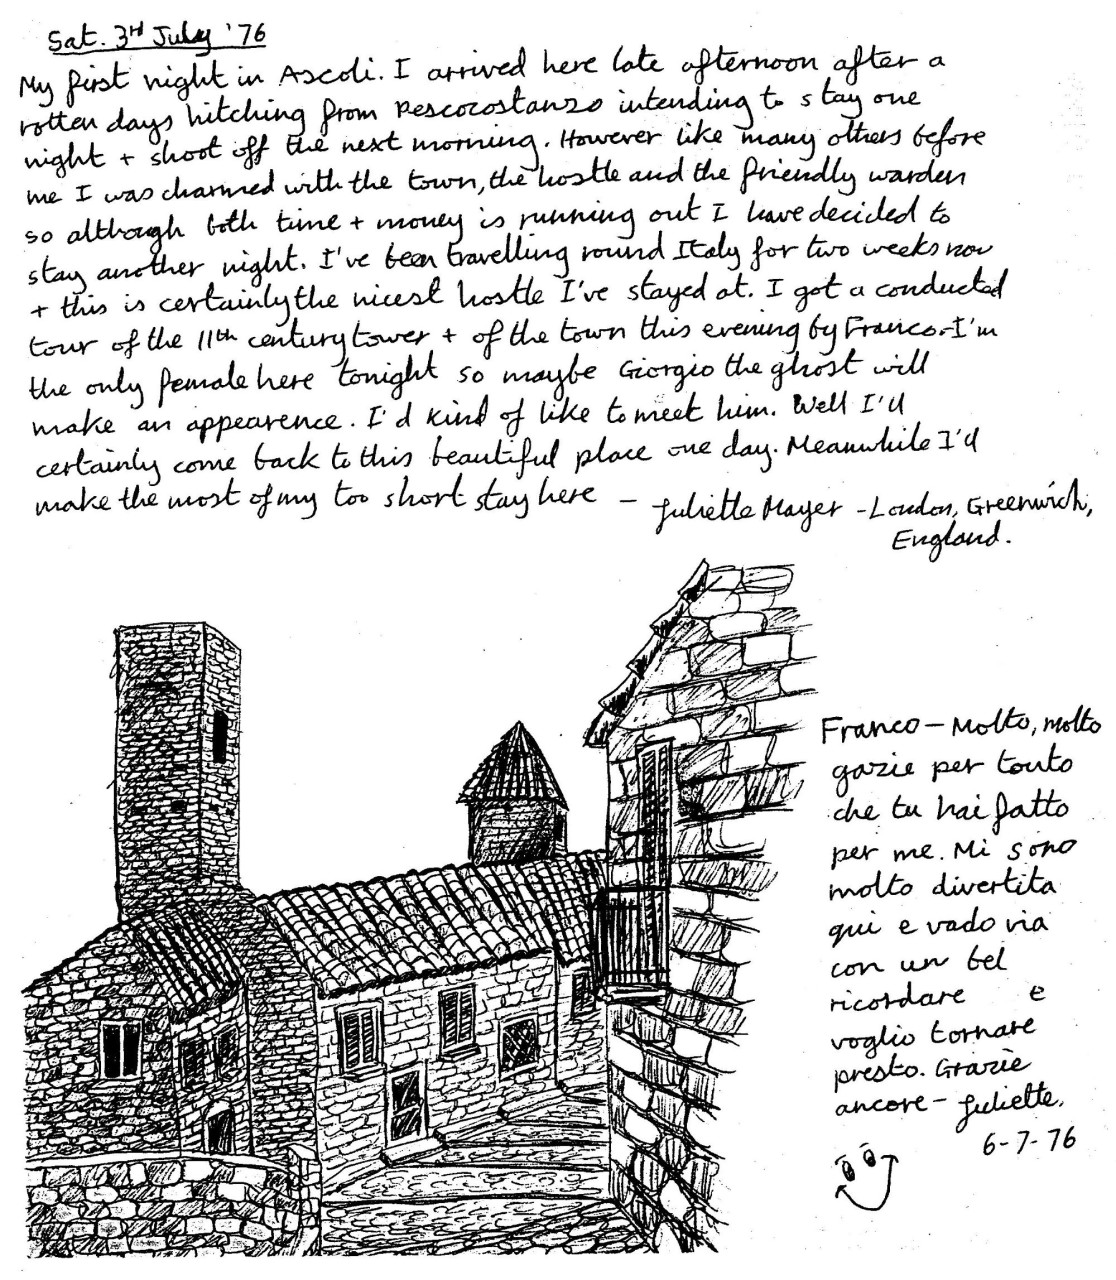 Sat. 3rd July '76
My first night in Ascoli. I arrived here late afternoon after a
rotten days hitching from Pescocostanzo intending to stay one
night + shoot off the next morning. However like many others before
me I was charmed with the town, the hostle and the friendly warden
so although both time + money is running out I have decided to
stay another night. I've been travelling round Italy for two weeks now
+ this is certainly the nicest hostle I've stayed at. I got a conducted
tour of the 11th century tower + of the town this evening by Franco. I'm
the only female here tonight so maybe Giorgio the ghost will
make an appearence. I'd kind of like to meet him. Well I'll
certainly come back to this beautiful place one day. Meanwhile I'll
make the most of my too short stay here – Juliette Mayer - London, Greenwich,
England.
Franco – Molto, molto
gazie per touto
che tu hai fatto
per me. Mi sono
molto divertita
qui e vado via
con un bel
ricordare e
voglio tornare
presto. Grazie
ancore – Juliette.
6-7-76